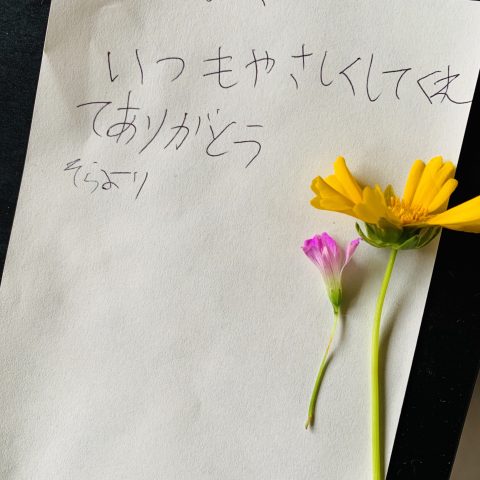 いつもやさしくしてくれ
てありがとう
そらより